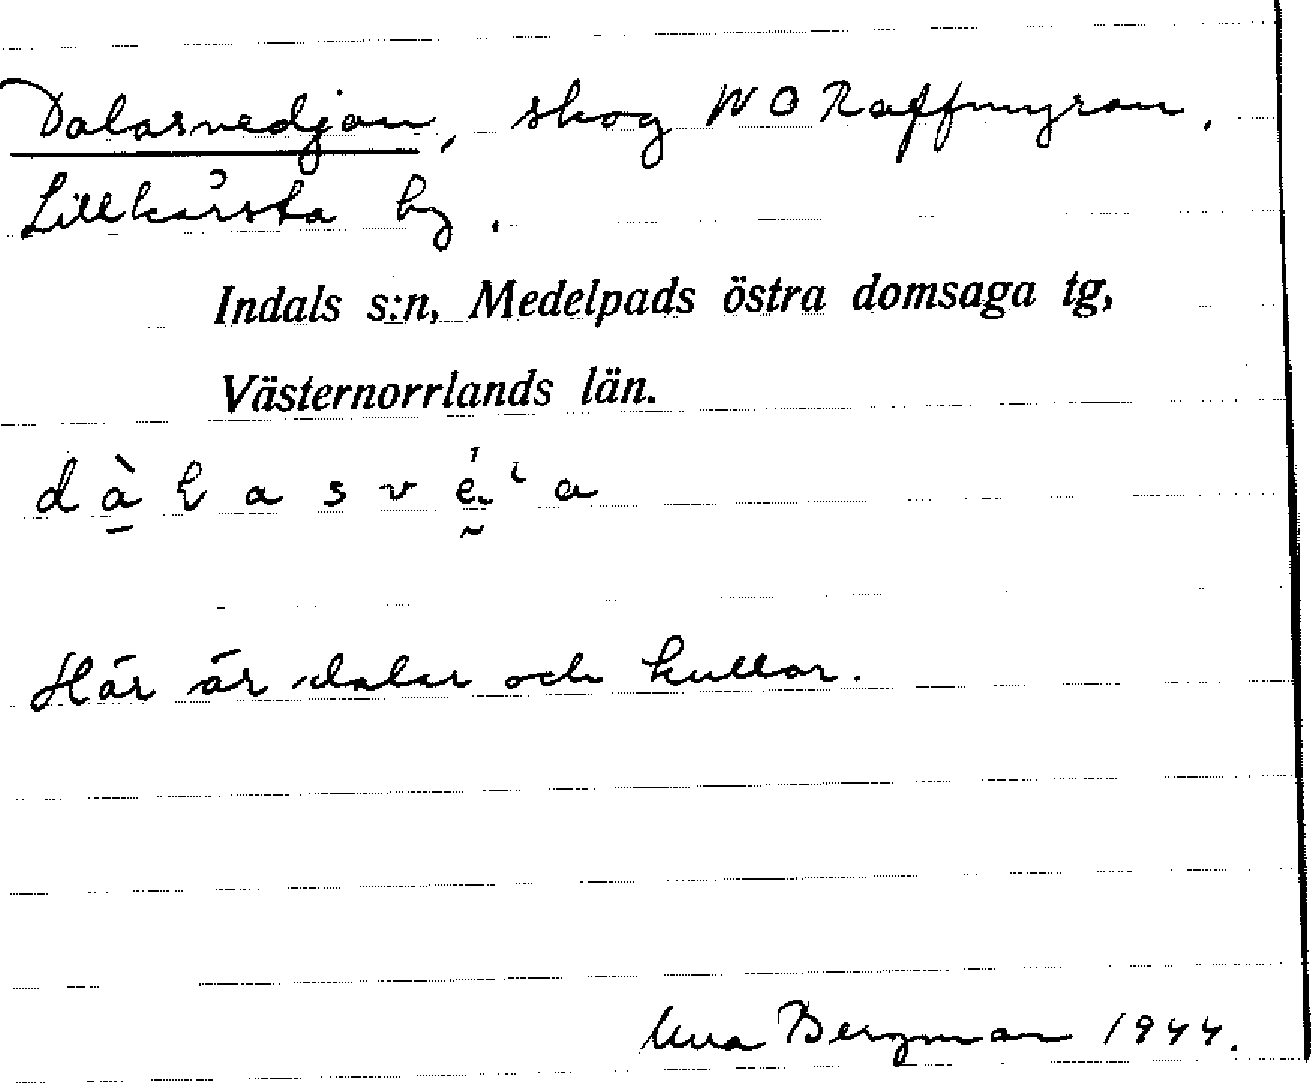 Dalasvedjan, skog NO Raffmyran.
Lillkårsta by.
Indals s:n, Medelpads östra domsaga tg,
Västernorrlands län.
Här är dalar och kullar.
Bergman 1944.